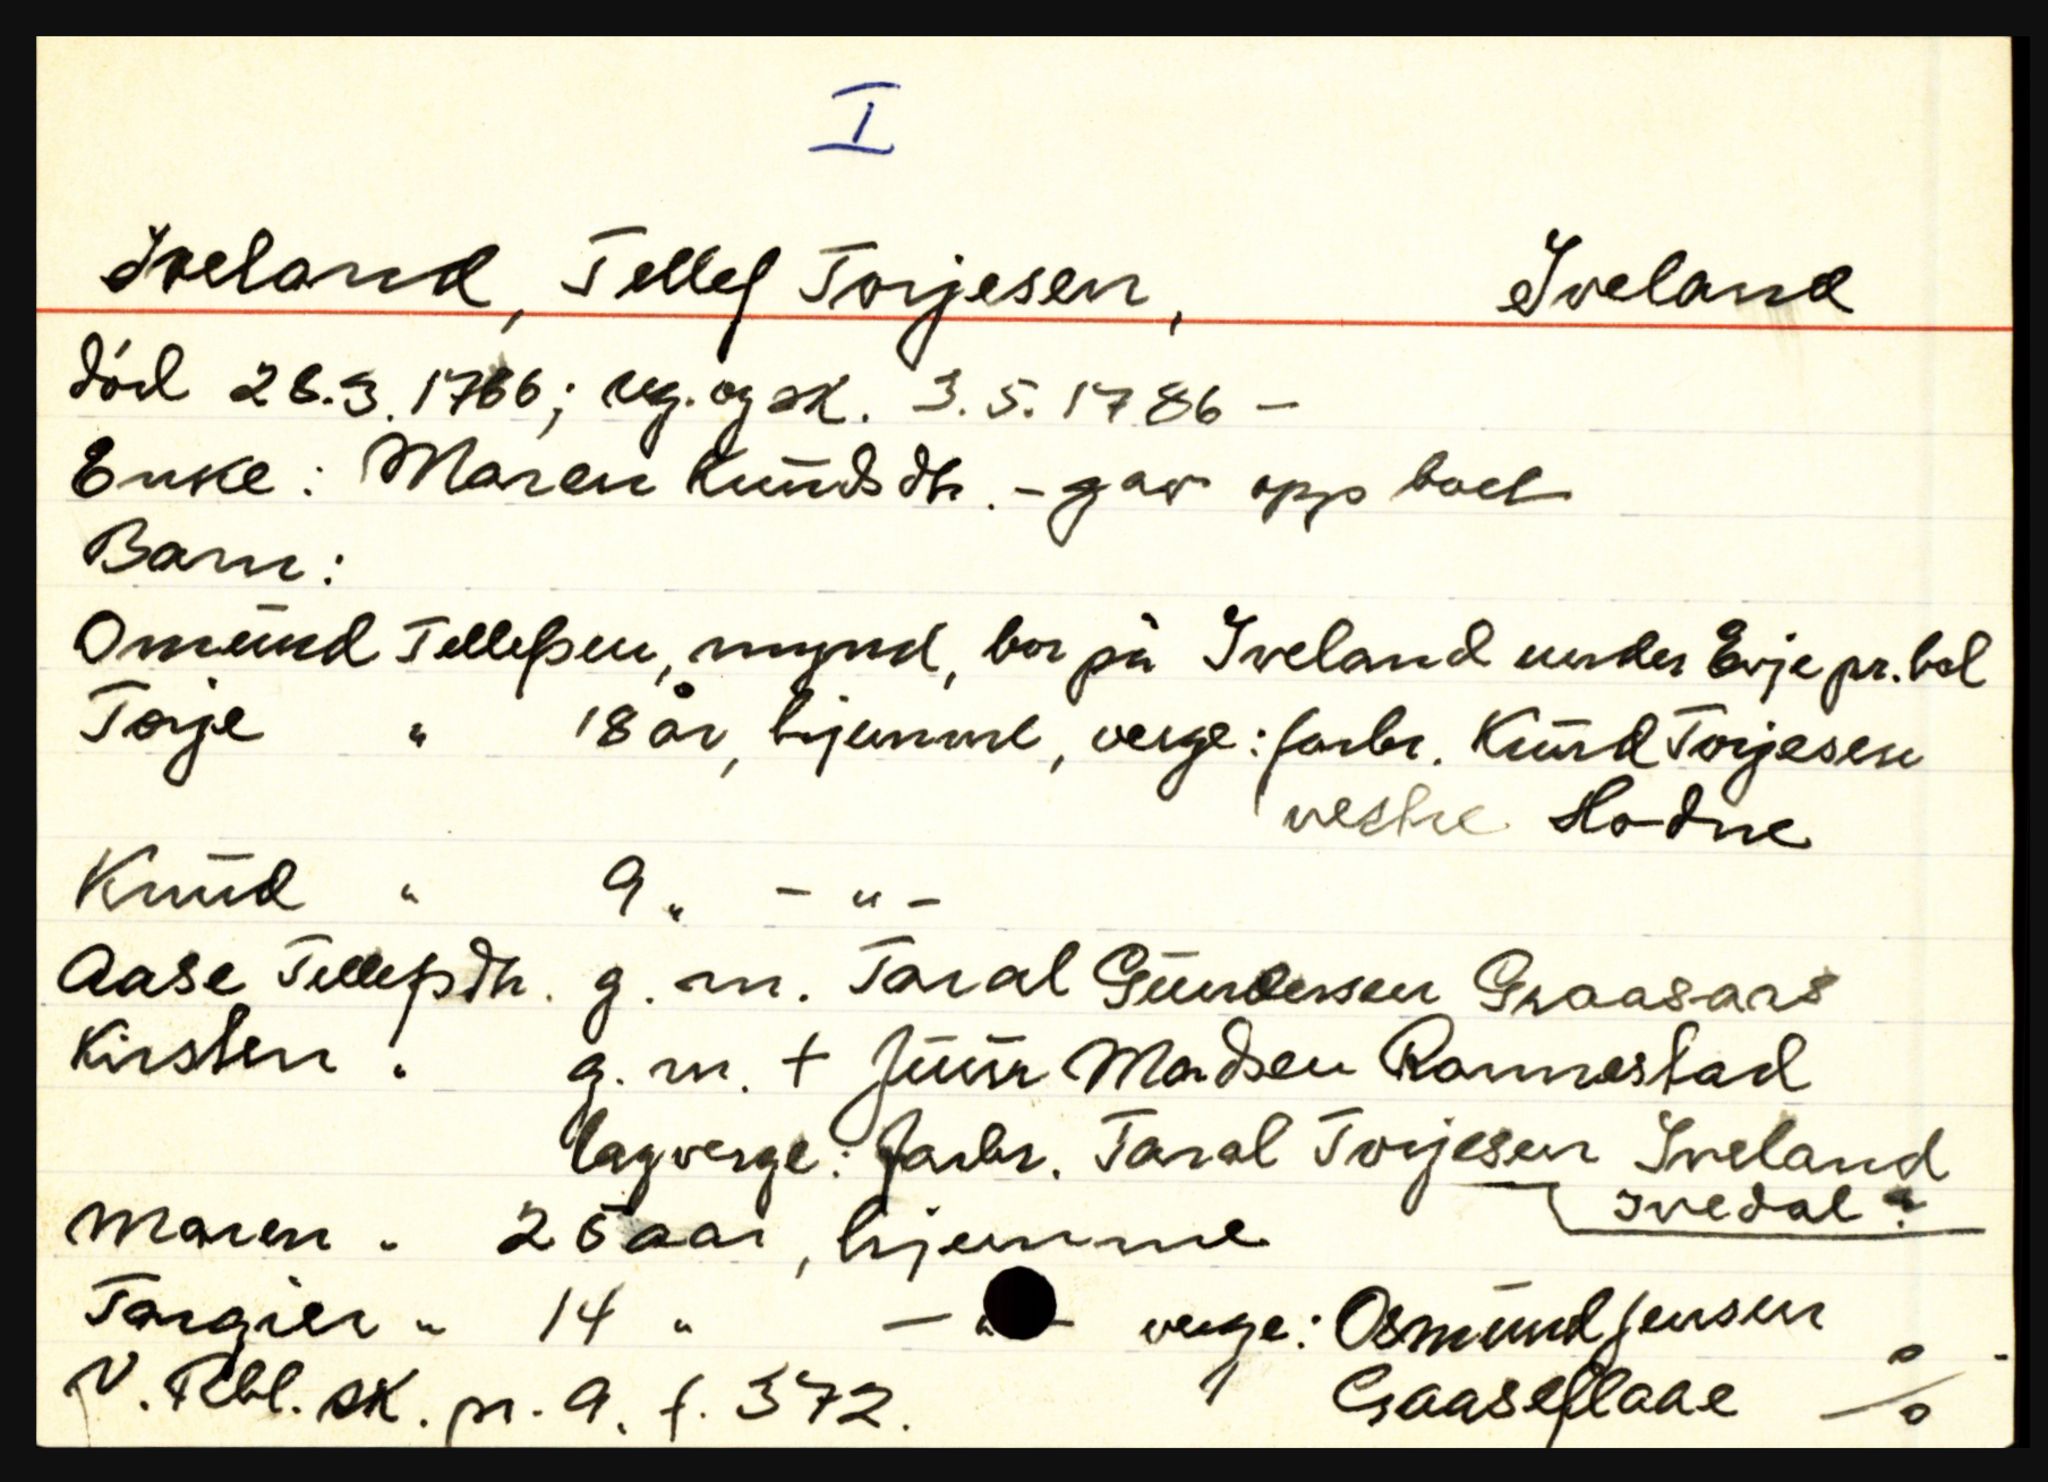 I
Iveland, Tellef Torjesen, Iveland
död 28.3.1786; reg. og sk. 3.5.1786 –
Enke: Maren Knudsdtr. – gav opp boet
Barn:
Omund Tellefsen, mynd, bor på Iveland under Evje pr.bol
Torje " 18 år, hjemme, verge: farbr. Knud Torjesen
vestre Hodne
Knud " 9 " – " –
Aase Tellefsdtr. g. m. Taral Gundersen Graasaas
Kirsten " g. m. + Juur Madsen Ronnestad
lagverge: farbr. Taral Torjesen Iveland
Ivedal?
Maren " 25 aar, hjemme
Torgier " 14 " – " – verge: Osmund Jensen
Gaaseflaae %
N. Rbl. sk. pr. 9. f. 372.